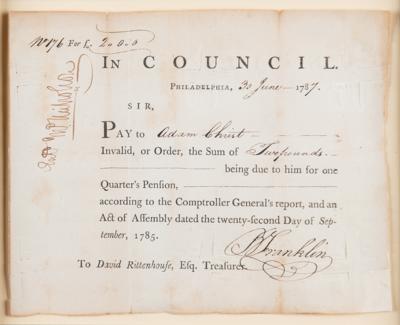 No 176 For £. 2-0-0
IN COUNCIL.
PHILADELPHIA, 30 June 1787.
SIR,
PAY to Adam Christ
Invalid, or Order, the Sum of Two pounds
being due to him for one
Quarter's Pension,
according to the Comptroller General's report, and an
Act of Assembly dated the twenty-second Day of Sep-
tember, 1785.
B Franklin
To David Rittenhouse, Esq. Treasurer.
Jno Nicholson